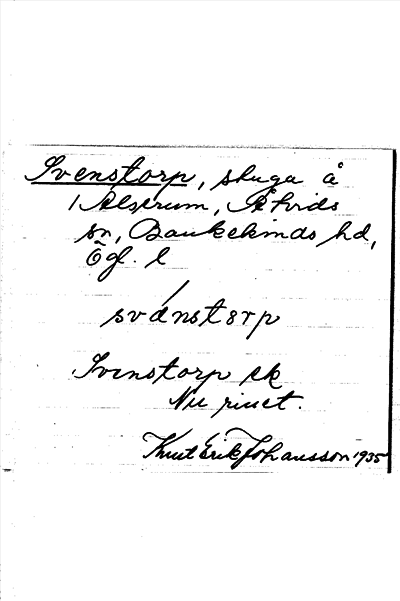 Svenstorp, stuga å
1 Älserum, Åtvids
sn, Bankekinds hd,
Ögl. l
svánstɜrp
Svenstorp ek
Nu rivet.
Knut Erik Johansson 1935